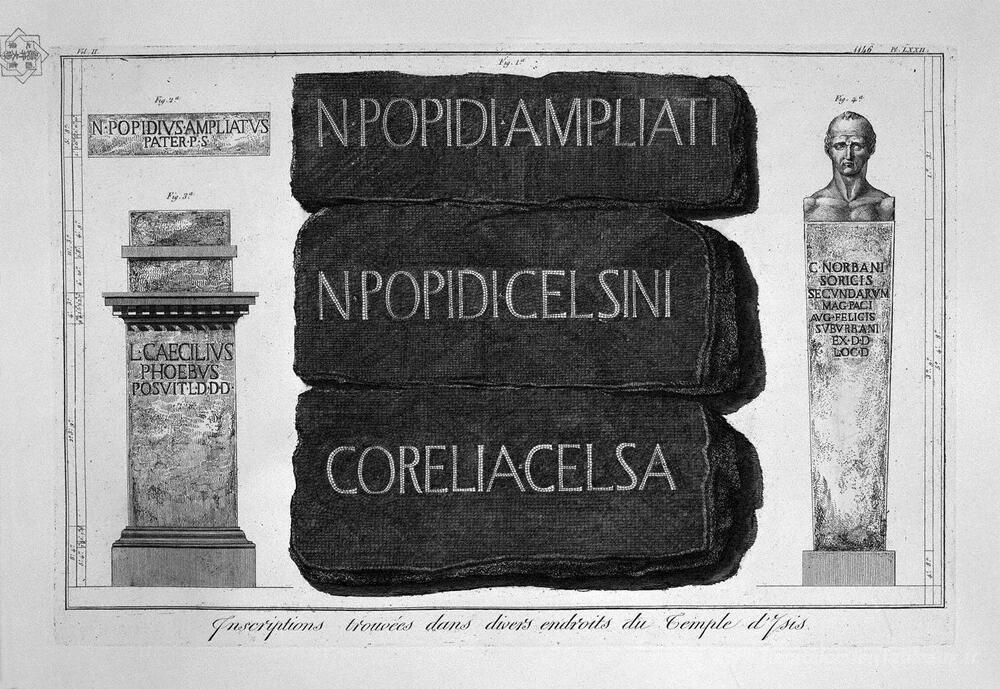 Vol. II.
1146 Pl. LXXII.
Fig. 1.a
N·POPIDI·AMPLIATI
N·POPIDI·CELSINI
CORELIA·CELSA
Fig. 2.a
N·POPIDIVS·AMPLIATVS
PATER·P·S
Fig. 3.a
L·CAECILIVS
PHOEBVS
POSVIT·L·D·D·D·
Fig. 4.a
C·NORBANI
SORICIS
SECVNDARVM
MAG·PAGI
AVG·FELICIS
SVBVRBANI
EX·D·D
LOC·D
Inscriptions trouvées dans divers endroits du Temple d'Isis.